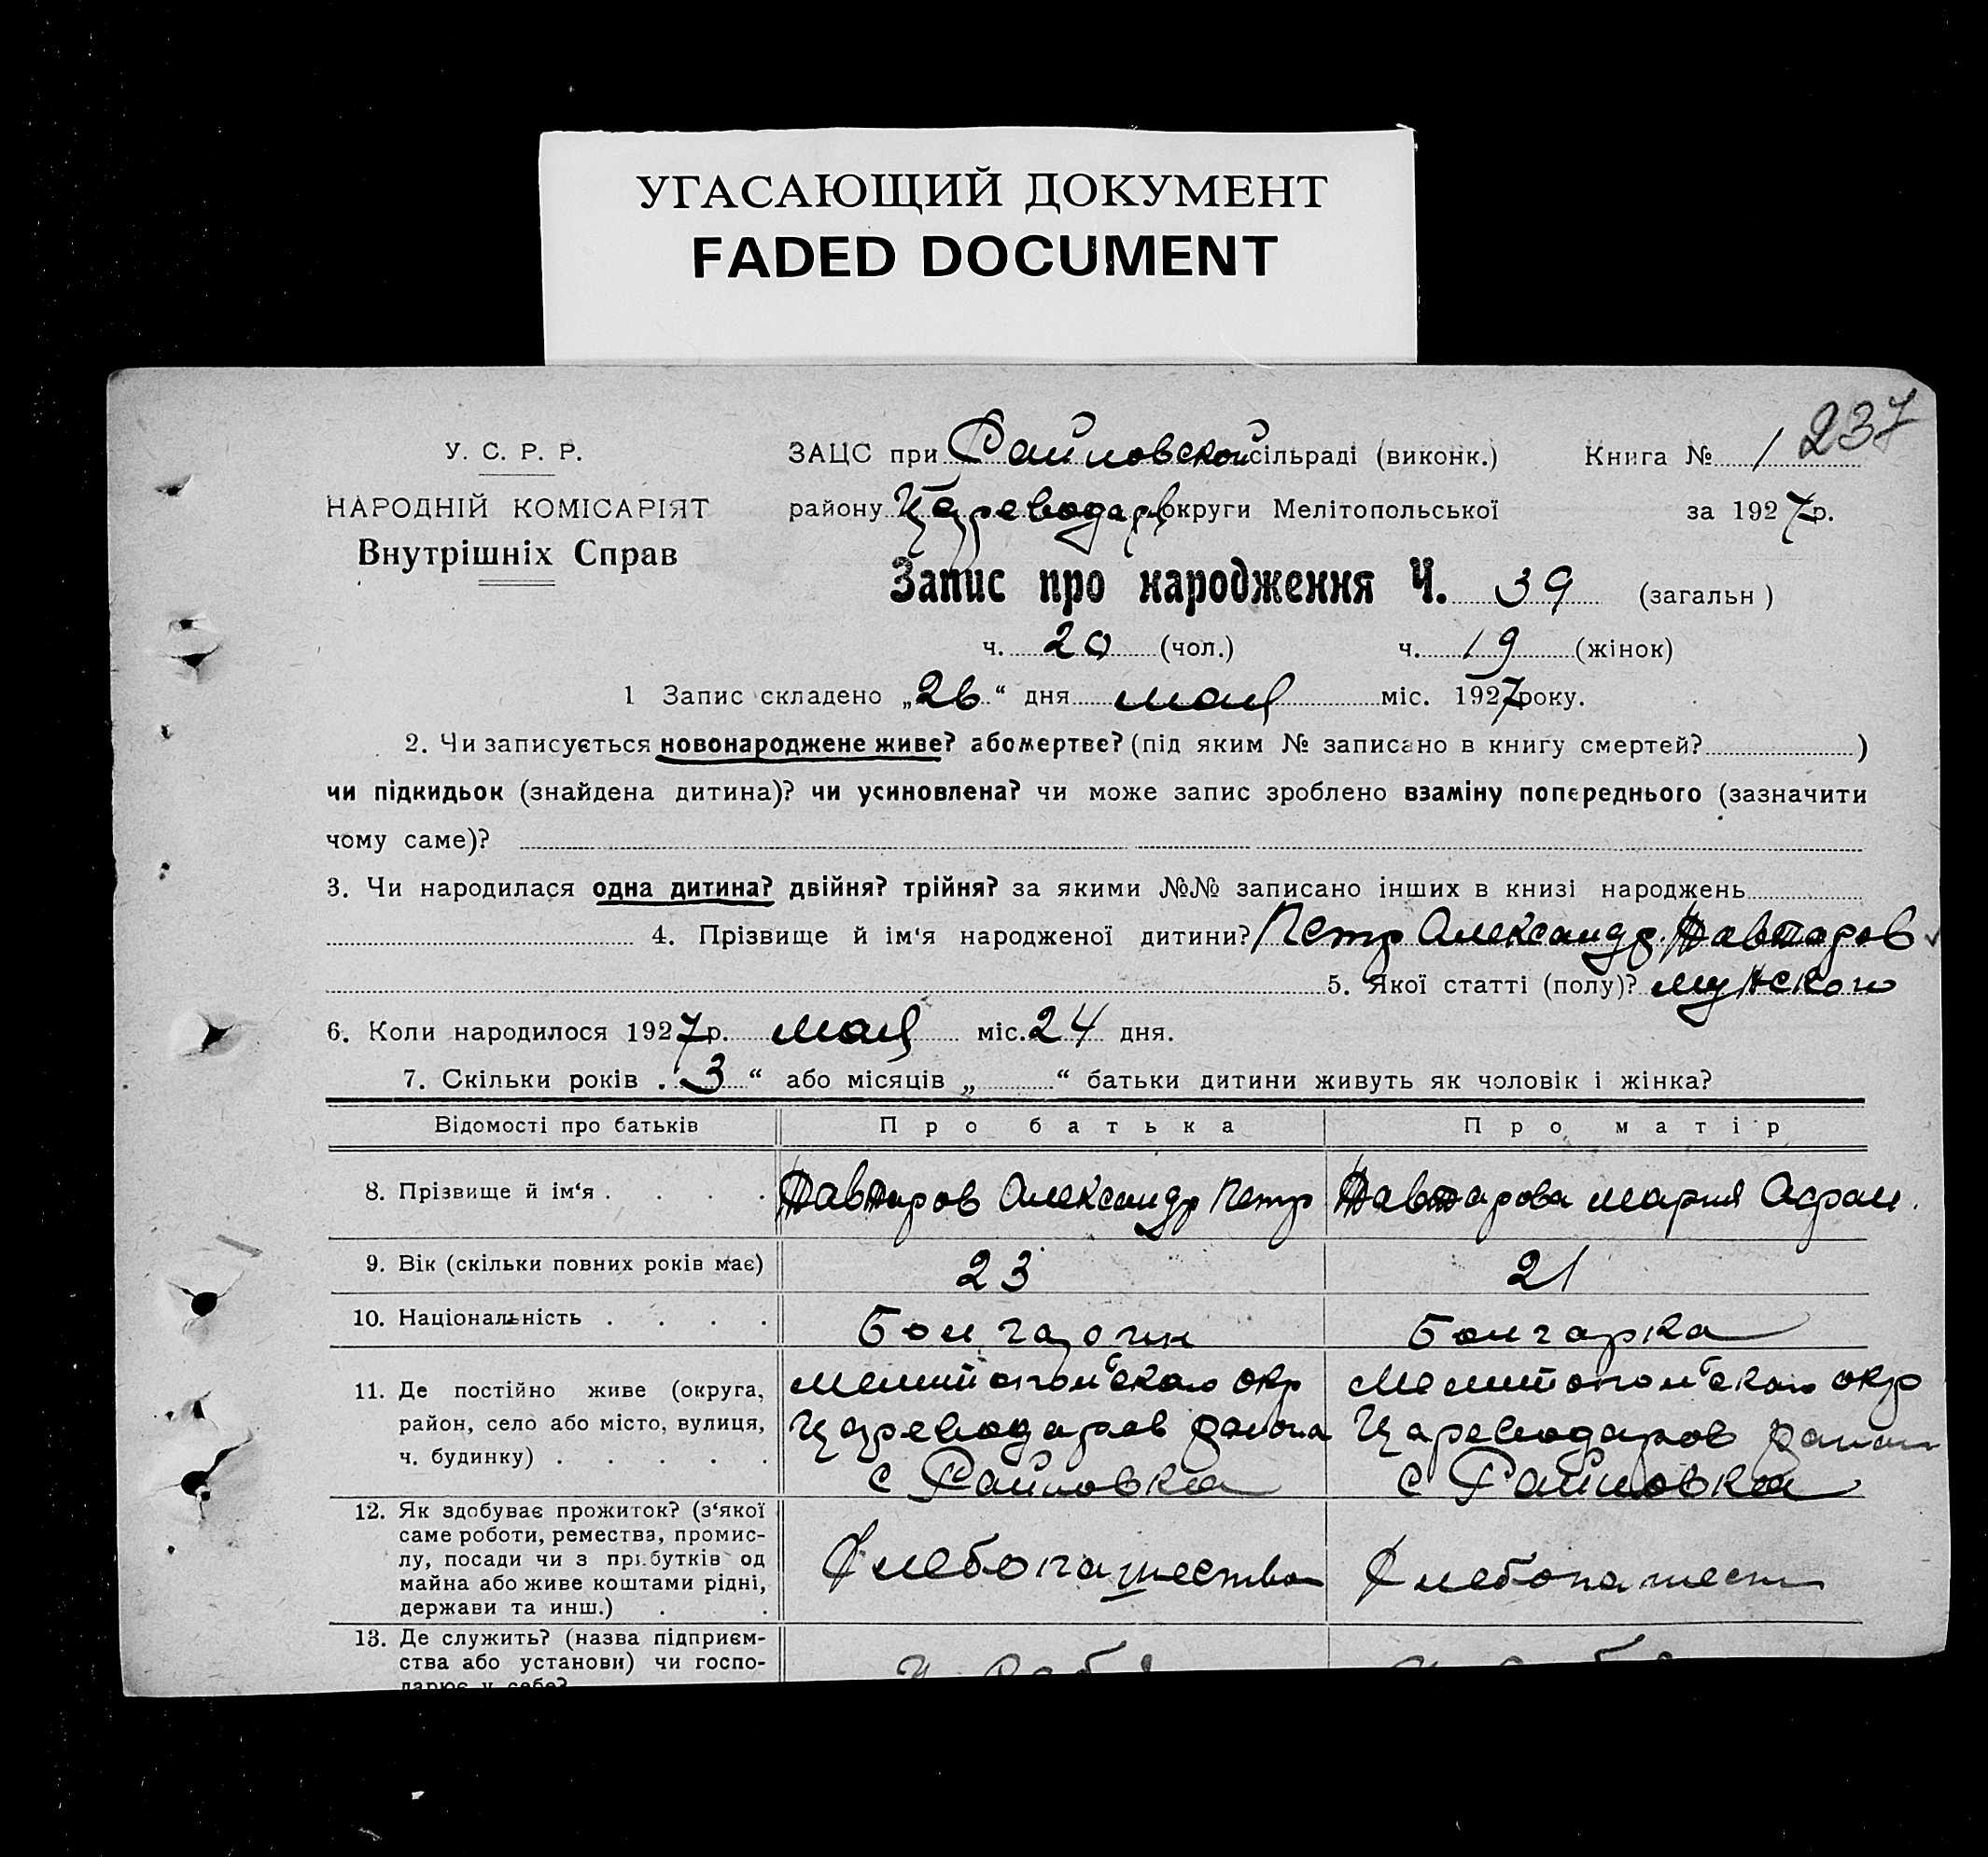 УГАСАЮЩИЙ ДОКУМЕНТ
FADED DOCUMENT
237
У. С. Р. Р.
ЗАЦС при Райновской сільраді (виконк.) Книга № 1
НАРОДНІЙ КОМІСАРІЯТ
району Цареводар округи Мелітопольської за 1927 р.
Внутрішніх Справ
Запис про народження Ч. 39 (загальн )
ч. 20 (чол.) ч. 19 (жінок)
1 Запис складено „26“ дня мая міс. 1927 року.
2. Чи записується новонароджене живе? або мертве? (під яким № записано в книгу смертей? )
чи підкидьок (знайдена дитина)? чи усиновлена? чи може запис зроблено взаміну попереднього (зазначити
чому саме)?
3. Чи народилася одна дитина? двійня? трійня? за якими №№ записано інших в книзі народжень
4. Прізвище й ім‘я народженої дитини? Петр Александр. Давтаров
5. Якої статті (полу)? мужского
6. Коли народилося 1927 р. мая міс. 24 дня.
7. Скільки років „3“ або місяців „ “ батьки дитини живуть як чоловік і жінка?
Відомості про батьків Про батька Про матір
8. Прізвище й ім‘я . . . . Давтаров Александр Петр Давтарова Мария Афран.
9. Вік (скільки повних років має) 23 21
10. Національність . . . . Болгарин Болгарка
11. Де постійно живе (округа, район, село або місто, вулиця, ч. будинку) . . . . .
Мелитопольского окр Мелитопольского окр
Цареводаров района Цареводаров район
с Райновка с Райновка
12. Як здобуває прожиток? (з‘якої
саме роботи, ремества, промис-
лу, посади чи з прибутків од
майна або живе коштами рідні,
держави та инш.) . .
Хлебопашество Хлебопашест
13. Де служить? (назва підприєм-
ства або установи) чи госпо-
дарює у себе?